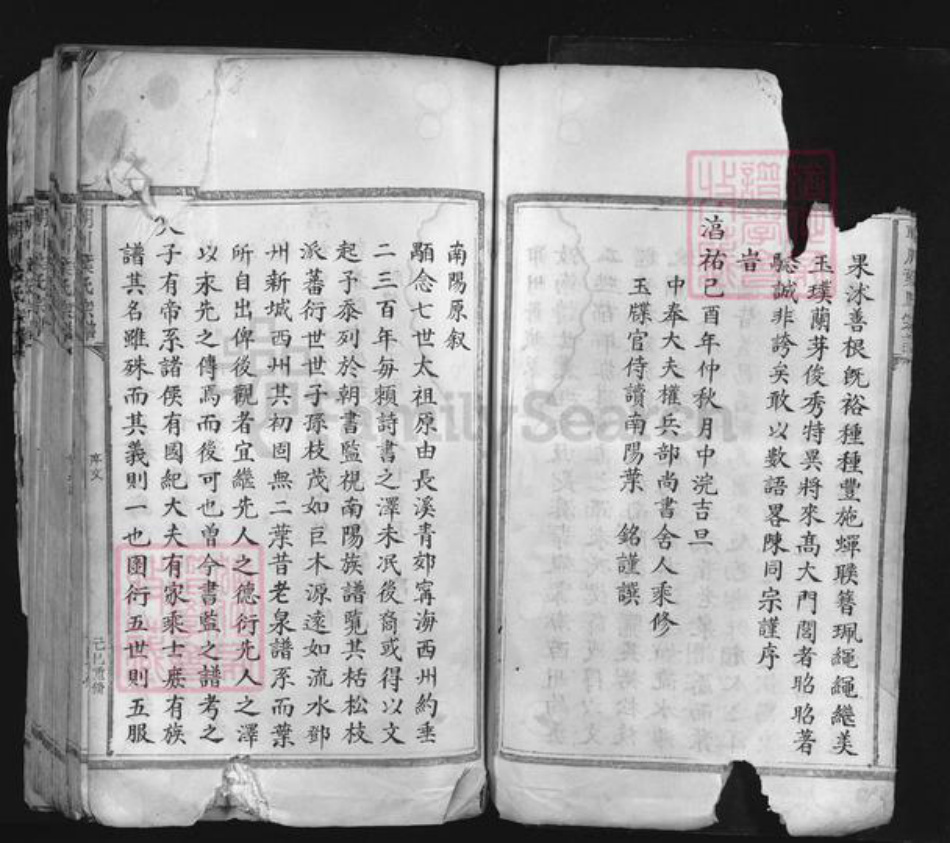 果沭善根既裕種種豐施蟬聯簪珮繩繩繼美
玉璞蘭芽俊秀特異將來高大門閭者昭昭著
聽誠非誇矣敢以數語畧陳同宗謹序
旹
淳祐己酉年仲秋月中浣吉旦
中奉大夫權兵部尚書舍人乘修
玉牒官侍讀南陽葉 銘謹譔
南陽原叙
顒念七世太祖原由長溪青郊寗海西州約垂
二三百年每賴詩書之澤未泯後裔或得以文
起予忝列於朝書監視南陽族譜覽其枯松枝
派蕃衍世世子孫枝茂如巨木源遠如流水鄧
州新城西州其初固無二葉昔老泉譜系而葉
所自出俾後觀者宜繼先人之德衍先人之澤
以永先之傳焉而後可也曾今書監之譜考之
天子有帝系諸侯有國紀大夫有家乘士庶有族
譜其名雖殊而其義則一也圖衍五世則五服
序文
己巳重脩
FamilySearch